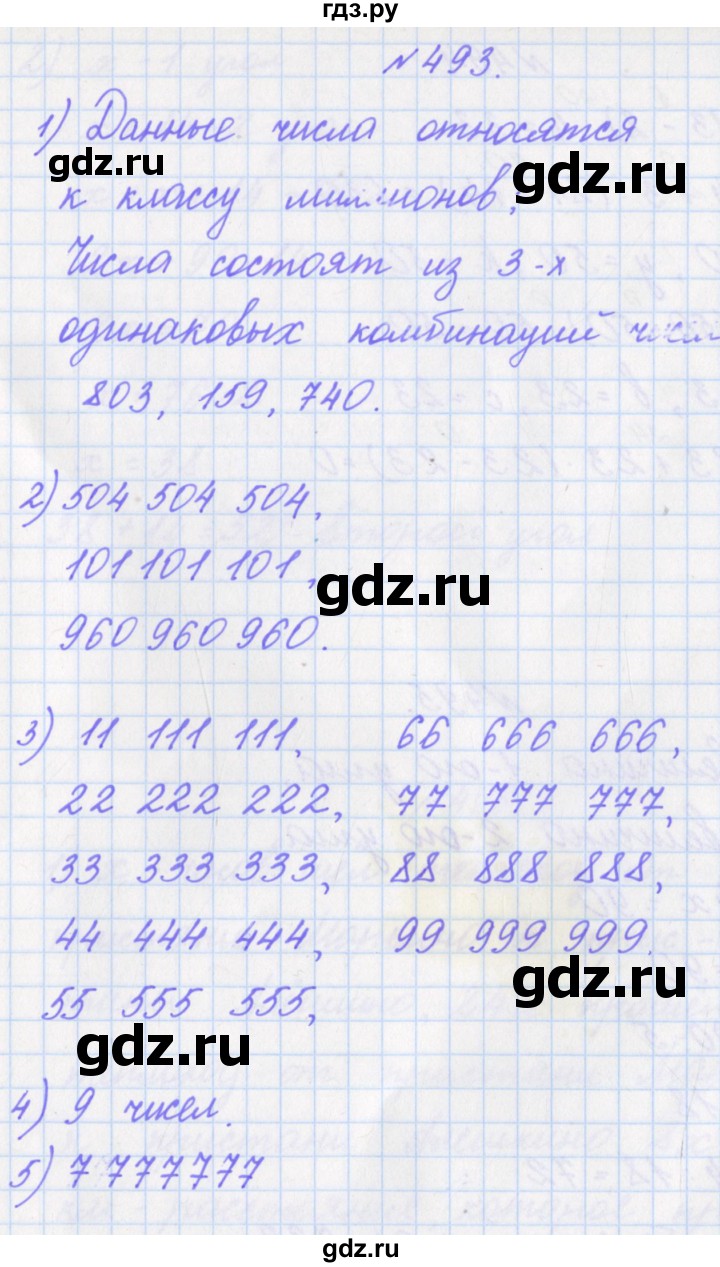 гдз.ру
№ 493.
1) Данные числа относятся
gdz.ru
gdz.ru
к классу миллионов,
Числа состоят из 3-х
одинаковых комбинаций чисел
803, 159, 740.
2) 504 504 504,
101 101 101,
gdz.ru
960 960 960.
3) 11 111 111, 66 666 666,
22 222 222, 77 777 777,
33 333 333, 88 888 888,
44 444 444, 99 999 999.
gdz.ru
55 555 555,
gdz.ru
4) 9 чисел.
5) 7 777 777
gdz.ru